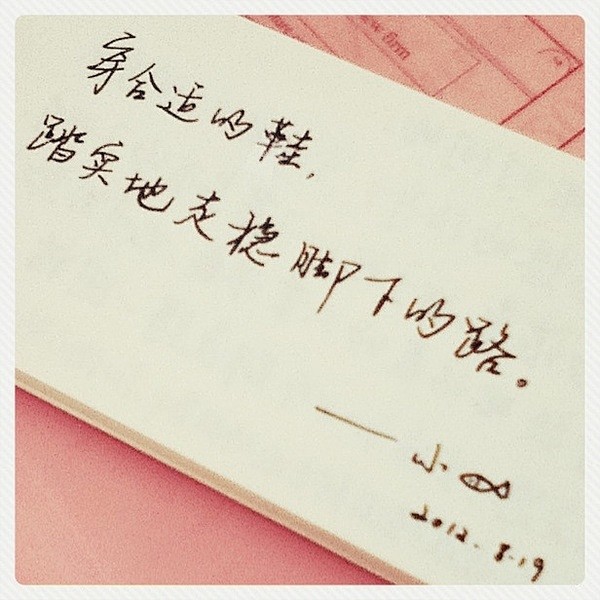 穿合适的鞋,
踏实地走稳脚下的路。
—— 小
2012.8.19